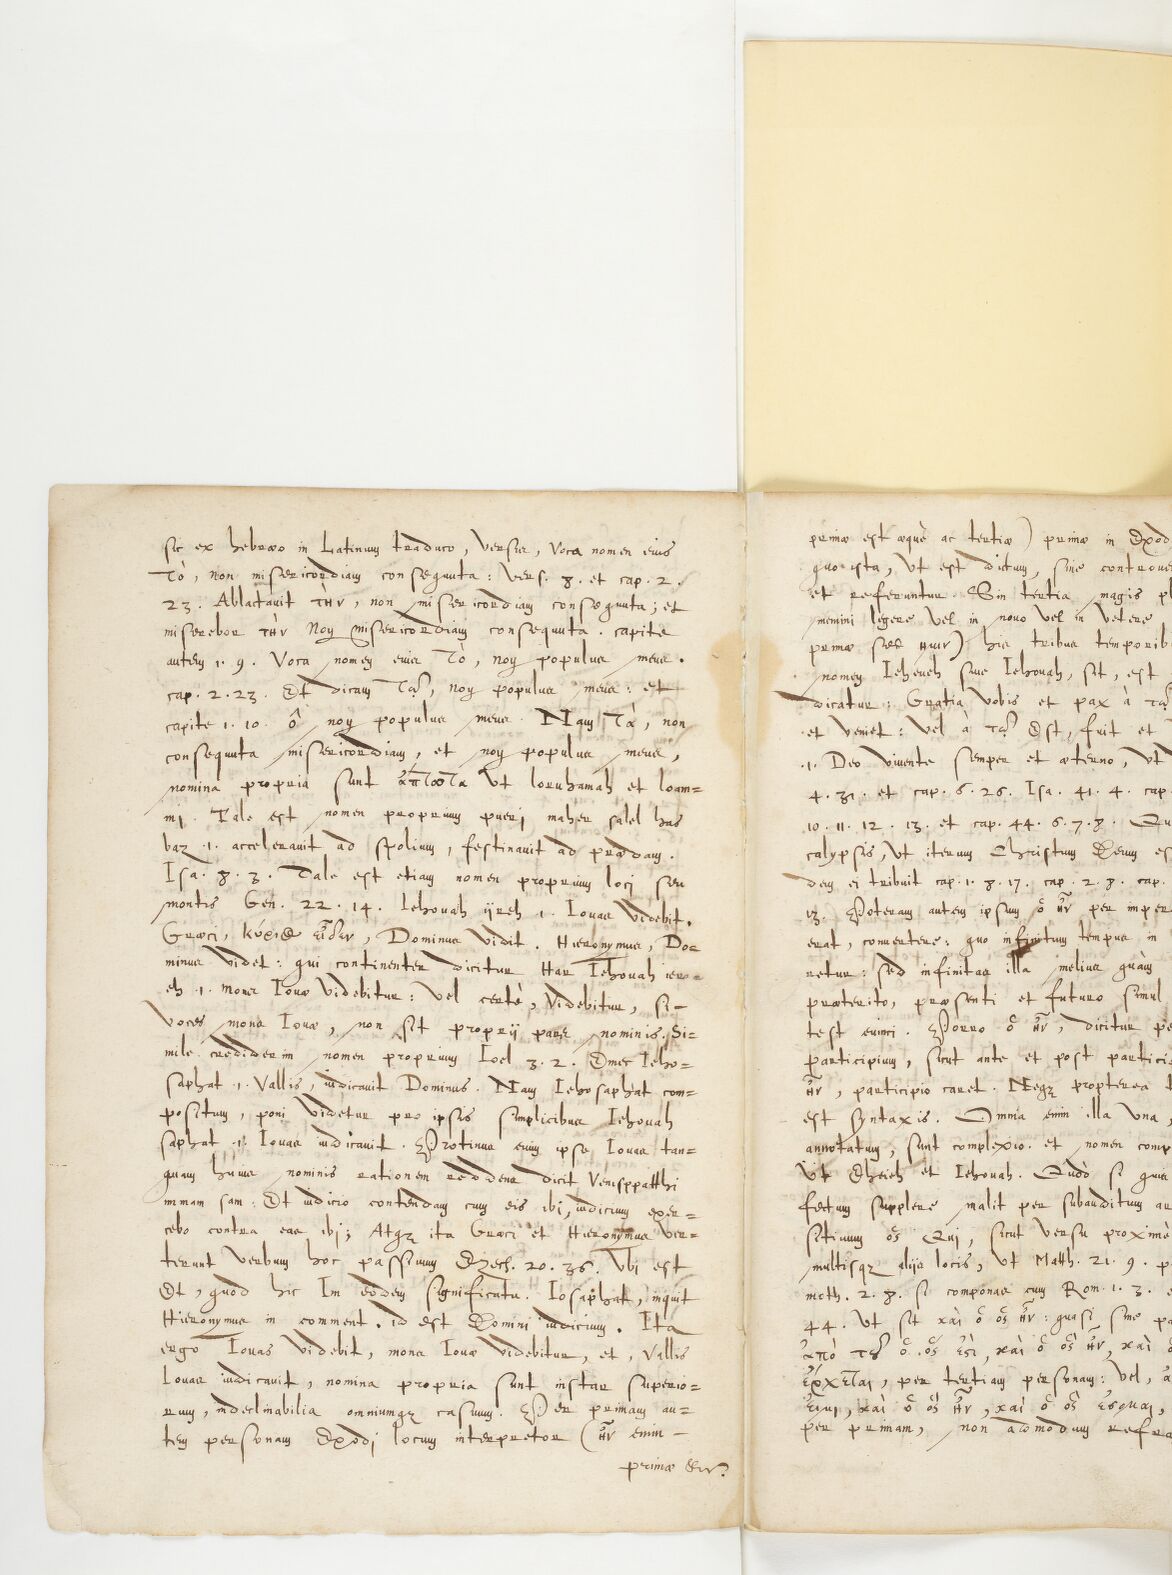 sic ex hebræo in Latinum traduco, versu, Voca nomen eius
Τὸ, non misericordiam consequuta: Vers. 8. et cap. 2.
23. Ablactauit τὴν, non misericordiam consequuta; et
miserebor τὴν Non misericordiam consequuta. capite
autem 1. 9. Voca nomen eius Τὸ, non populus meus.
cap. 2. 23. Et dicam Τῷ, non populus meus: et
capite 1. 10. ὁ non populus meus. Nam Τὰ, non
consequuta misericordiam, et non populus meus,
nomina propria sunt ἄπτωτα Vt loruhamah et loam=
mi. Tale est nomen proprium pueri maher salel has
baz .1. accelerauit ad spolium, festinauit ad prædam.
Isa. 8. 3. Tale est etiam nomen proprium loci seu
montis Gen. 22. 14. Iehouah ijreh .1. Iouas Videbit.
Græci, κύριος εἶδεν, Dominus Vidit. Hieronymus, Do=
minus Videt: qui continenter dicitur Har Iehouah ier=
eh .1. mons Iouæ Videbitur: Vel certè, Videbitur, si
Voces mons Iouæ, non sit proprij pars nominis. Si=
mile crediderim nomen proprium Ioel 3. 2. Emec Ieho=
saphat .1. Vallis, iudicauit Dominus. Nam Iehosaphat com=
positum, poni Videtur pro ipsis simplicibus Iehouah
saphat .1. Iouas iudicauit. Protinus enim ipse Iouas tan=
quam huius nominis rationem reddens dicit Venisppatthi
immam sam: Et iudicio contendam cum eis ibi, iudicium exer=
cebo contra eas ibi; Atque ita Græci et Hieronymus Ver=
terunt Verbum hoc passiuum Ezech. 20. 36. Vbi est
Et, quod hic Im eodem significatu. Iosaphat, inquit
Hieronymus in comment. id est Domini iudicium. Ita
ergo Iouas Videbit, mons Iouæ Videbitur, et, Vallis
Iouas iudicauit, nomina propria sunt instar superio=
rum, indeclinabilia omniumque casuum. Per primam au=
tem personam Exodi locum interpretor (ἦν enim
primæ
primæ est æquè ac tertiæ) primæ in Exod
quo ista, Vt est dictum, sine controue
et referuntur. Sin tertia magis pl
memini legere Vel in nouo Vel in Vetere
primæ ἦν) his tribus temporib
nomen Iehoueh siue Iehouah, sit, est
dicatur: Gratia Vobis et pax à τοῦ
et Veniet: Vel à τοῦ Est, fuit et
.1. Deo Viuente semper et æterno, Vt
4. 31. et cap. 6. 26. Isa. 41. 4. cap.
10. 11. 12. 13. et cap. 44. 6. 7. 8. Qu
calypsis, Vt iterum Christum Deum es
dem ei tribuit cap. 1. 8. 17. cap. 2. 8. cap.
13. Poteram autem ipsum ὁ ἦν per imper
erat, conuertere: quo infinitum tempus in
retur: sed infinitas illa melius quàm
præterito, præsenti et futuro simul
test euinci. Porro ὁ ἦν, dicitur pe
participium, sicut ante et post partici
ἦν, participio caret. Neque propterea
est syntaxis. Omnia enim illa Vna,
annotatum, sunt complexio et nomen comp
Vt Ehieh et Iehouah. Quòd si quis
fectum supplere malit per subauditum ar
sitiuum ὃς Qui, sicut Versu proximè
multisque alijs locis, Vt Matth. 21. 9.
moth. 2. 8. si componas cum Rom. 1. 3.
44. Vt sit καὶ ὁ ὃς ἦν: quasi sine
ἀπὸ τοῦ ὁ ὃς ἐστὶ, καὶ ὁ ὃς ἦν, καὶ ὁ
ἔρχεται, per tertiam personam: Vel, ἀ
εἰμι, καὶ ὁ ὃς ἦν, καὶ ὁ ὃς ἔσομαι,
per primam, non admodum refra